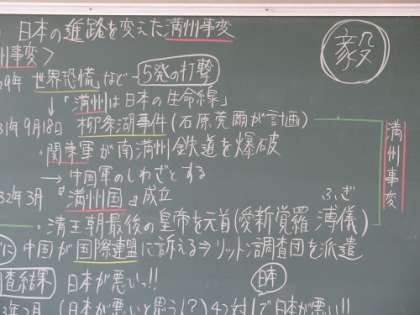 日本の進路を変えた満州事変
州事変>
世界恐慌など 5発の打撃
↓「満州は日本の生命線」
31年9月18日 柳条湖事件(石原莞爾が計画)
・関東軍が南満州鉄道を爆破
→中国軍のしわざとする
32年3月 『満州国』成立
・清王朝最後の皇帝を元首(愛新覚羅 溥儀)
ふぎ
に 中国が国際連盟に訴える⇒リットン調査団を派遣
査結果 日本が悪いっ!!
(日本が悪いと思う(?)42対1で日本が悪い!!
毅
満州事変